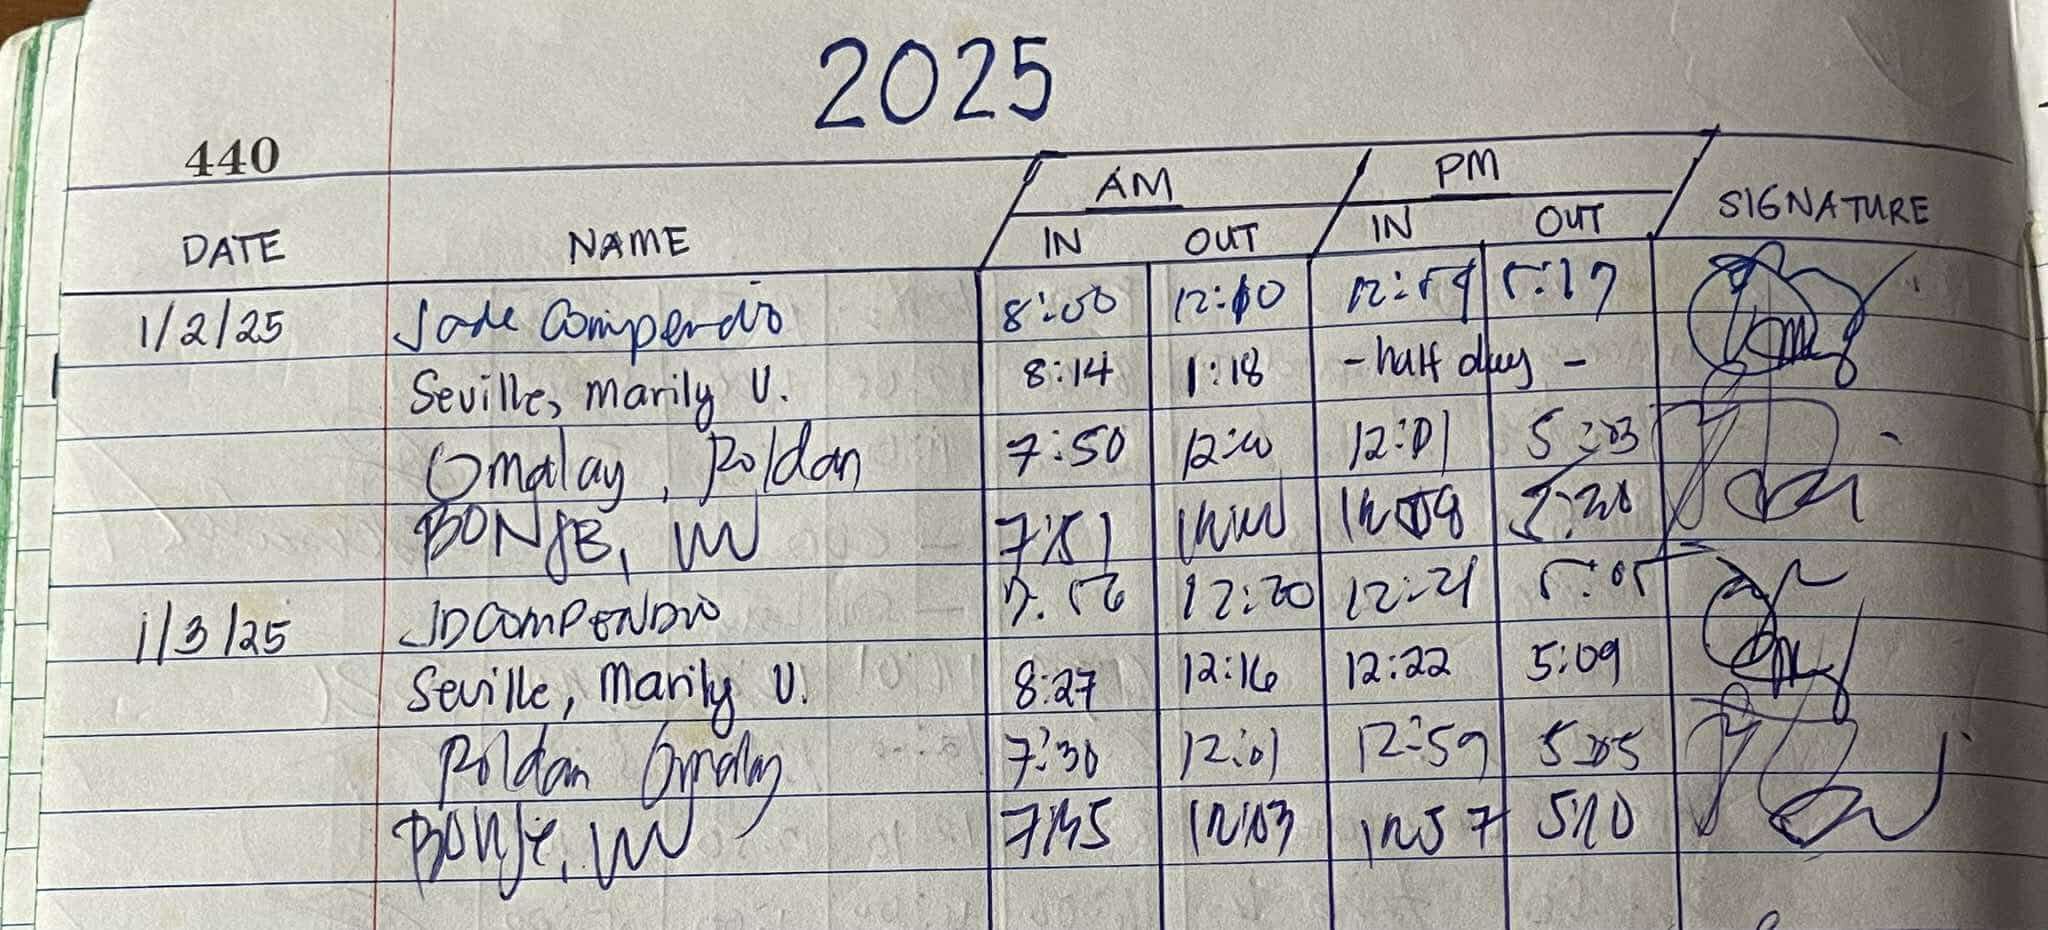 2025
440
AM PM
DATE NAME IN OUT IN OUT SIGNATURE
1/2/25 Jade Compendio 8:00 12:10 12:59 5:17
Seville, Marily U. 8:14 1:18 - half day -
Omalay, Roldan 7:50 12:00 12:01 5:03
BONJE, 7:51 5:20
1/3/25 JD COMPENDIO 7:56 12:20 12:21 5:05
Seville, Marily U. 8:27 12:16 12:22 5:09
Roldan Omalay 7:30 12:01 12:59 5:05
BONJE, 7:45 12:03 12:57 5:10